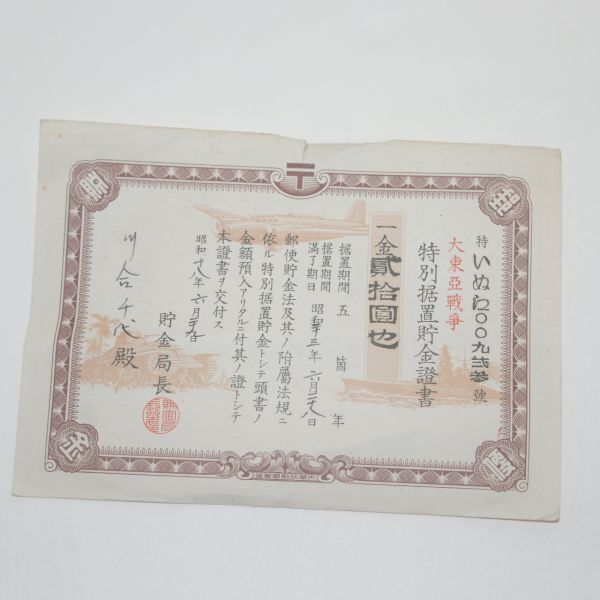 〒
特いぬに〇〇九弐参號
大東亞戰爭
特別据置貯金證書
一金貳拾圓也
据置期間 五箇年
据置期間滿了期日 昭和廿三年六月廿八日
郵便貯金法及其ノ附屬法規ニ
依ル特別据置貯金トシテ頭書ノ
金額預入アリタルニ付其ノ證トシテ
本證書ヲ交付ス
昭和十八年六月廿九日
貯金局長
川合千代殿